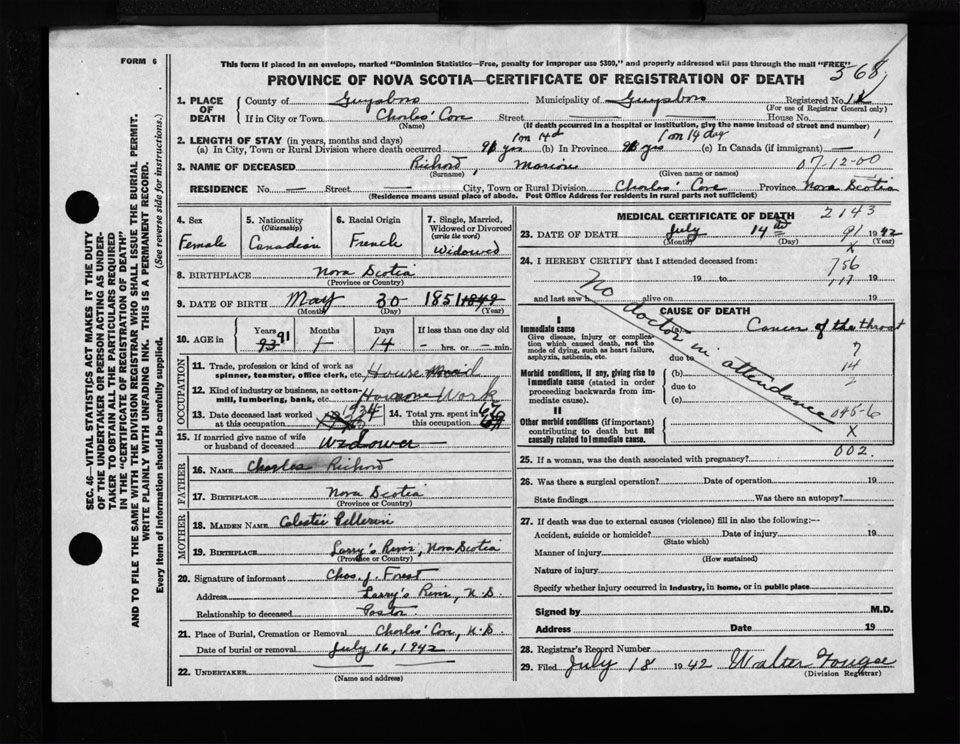 FORM 6
This form if placed in an envelope, marked "Dominion Statistics—Free, penalty for improper use $300," and properly addressed will pass through the mail "FREE"
568
PROVINCE OF NOVA SCOTIA—CERTIFICATE OF REGISTRATION OF DEATH
SEC. 46—VITAL STATISTICS ACT MAKES IT THE DUTY
OF THE UNDERTAKER OR PERSON ACTING AS UNDER-
TAKER TO OBTAIN ALL THE PARTICULARS REQUIRED
IN THE "CERTIFICATE OF REGISTRATION OF DEATH"
AND TO FILE THE SAME WITH THE DIVISION REGISTRAR WHO SHALL ISSUE THE BURIAL PERMIT.
WRITE PLAINLY WITH UNFADING INK. THIS IS A PERMANENT RECORD.
Every item of information should be carefully supplied. (See reverse side for instructions.)
1. PLACE OF DEATH County of Guysboro Municipality of Guysboro Registered No. 12
(For use of Registrar General only)
If in City or Town Charles' Cove Street — House No.
(Name) (If death occurred in a hospital or institution, give the name instead of street and number)
2. LENGTH OF STAY (in years, months and days)
1 m 14 d 1 m 14 day 1
(a) In City, Town or Rural Division where death occurred 91 yrs (b) In Province 91 yrs (c) In Canada (if immigrant) —
3. NAME OF DECEASED Richard, Marion 07-12-00
(Surname) (Given name or names)
RESIDENCE No. — Street — City, Town or Rural Division Charles' Cove Province Nova Scotia
(Residence means usual place of abode. Post Office Address for residents in rural parts not sufficient)
4. Sex
Female
5. Nationality
(Citizenship)
Canadian
6. Racial Origin
French
7. Single, Married,
Widowed or Divorced
(write the word)
Widowed
8. BIRTHPLACE Nova Scotia
(Province or Country)
9. DATE OF BIRTH May 30 1851 1849
(Month) (Day) (Year)
10. AGE in
Years Months Days If less than one day old
93 91 1 14 — hrs. or — min.
OCCUPATION
11. Trade, profession or kind of work as
spinner, teamster, office clerk, etc. House Maid
12. Kind of industry or business, as cotton-
mill, lumbering, bank, etc. House Work
13. Date deceased last worked
at this occupation 1934
14. Total yrs. spent in
this occupation
15. If married give name of wife
or husband of deceased Widower
FATHER
16. NAME Charles Richard
17. BIRTHPLACE Nova Scotia
(Province or Country)
MOTHER
18. MAIDEN NAME Celestie Pellerin
19. BIRTHPLACE Larry's River, Nova Scotia
(Province or Country)
20. Signature of informant Chas. J. Forest
Address Larry's River, N.S.
Relationship to deceased Pastor
21. Place of Burial, Cremation or Removal Charles' Cove, N.S.
Date of burial or removal July 16, 1942
22. UNDERTAKER —
(Name and address)
MEDICAL CERTIFICATE OF DEATH 2143
23. DATE OF DEATH July 14th 91 1942
(Month) (Day) (Year)
X
24. I HEREBY CERTIFY that I attended deceased from:
756
19 to 19
111
and last saw h alive on 19
No doctor in attendance
CAUSE OF DEATH
I
Immediate cause (a) Cancer of the throat
Give disease, injury or complica-
tion which caused death, not the
mode of dying, such as heart failure,
asphyxia, asthenia, etc.
due to
7
14
2
Morbid conditions, if any, giving rise to
immediate cause (stated in order
proceeding backwards from im-
mediate cause).
(b)
due to
(c)
045-6
II
Other morbid conditions (if important)
contributing to death but not
causally related to immediate cause.
X
002.
25. If a woman, was the death associated with pregnancy?
26. Was there a surgical operation? Date of operation 19
State findings Was there an autopsy?
27. If death was due to external causes (violence) fill in also the following:—
Accident, suicide or homicide? Date of injury 19
(State which)
Manner of injury
(How sustained)
Nature of injury
Specify whether injury occurred in industry, in home, or in public place
Signed by M.D.
Address Date 19
28. Registrar's Record Number
29. Filed July 18 1942 Walter Fougere
(Division Registrar)